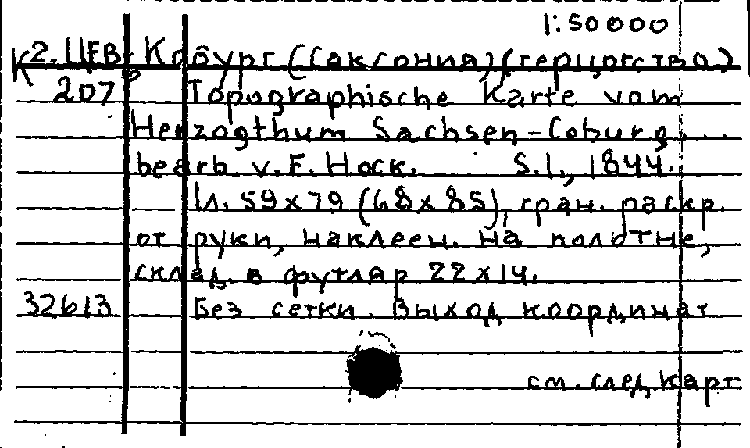 1:50000
К 2.ЦЕВ- Кобург (Саксония) (герцогство)
207 Topographische Karte vom
Herzogthum Sachsen-Coburg...
bearb. v. F. Hock. S.l., 1844.
1л. 59x79 (68x85), гран. раскр.
от руки, наклеен. на полотне,
склад. в футляр 22x14.
32613 Без сетки. Выход координат
см. след карт